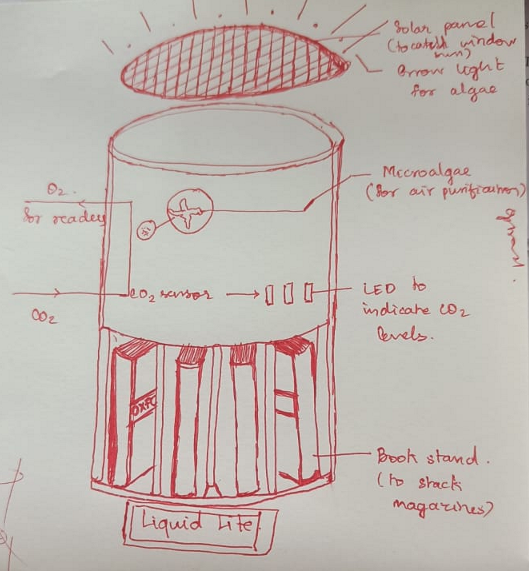 Solar panel
(to catch window
sun)
Grow light
for algae
Microalgae
(for air purification)
O2.
for reader
CO2 sensor
CO2
LED to
indicate CO2
levels.
OXFO
Book stand.
(to stack
magazines)
Liquid Lite.